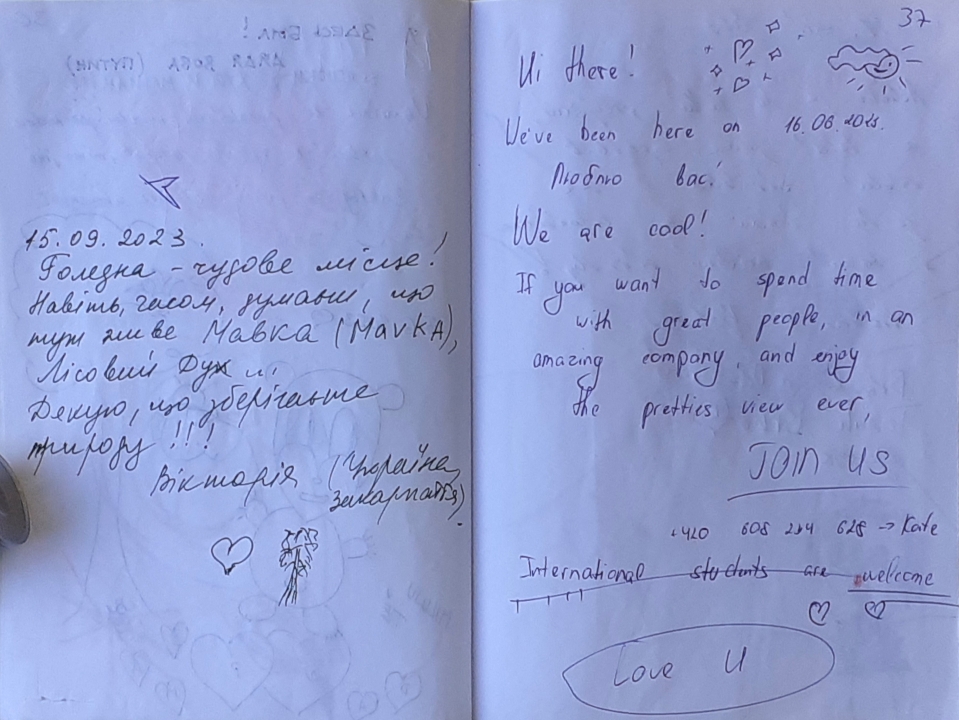 15.09.2023.
Голедна - чудове місце!
Навіть, часом, думаєш, що
тут живе Мавка (MavkA),
Лісовий Дух и,
Дякую, що зберігаєте
природу!!!
Вікторія (Україна,
Закарпаття).
37
Hi there!
We've been here on 16.06.2023.
Люблю вас!
We are cool!
If you want to spend time
with great people, in an
amazing company, and enjoy
the pretties view ever,
JOIN US
+420 608 214 628 → Kate
International students are welcome
Love U